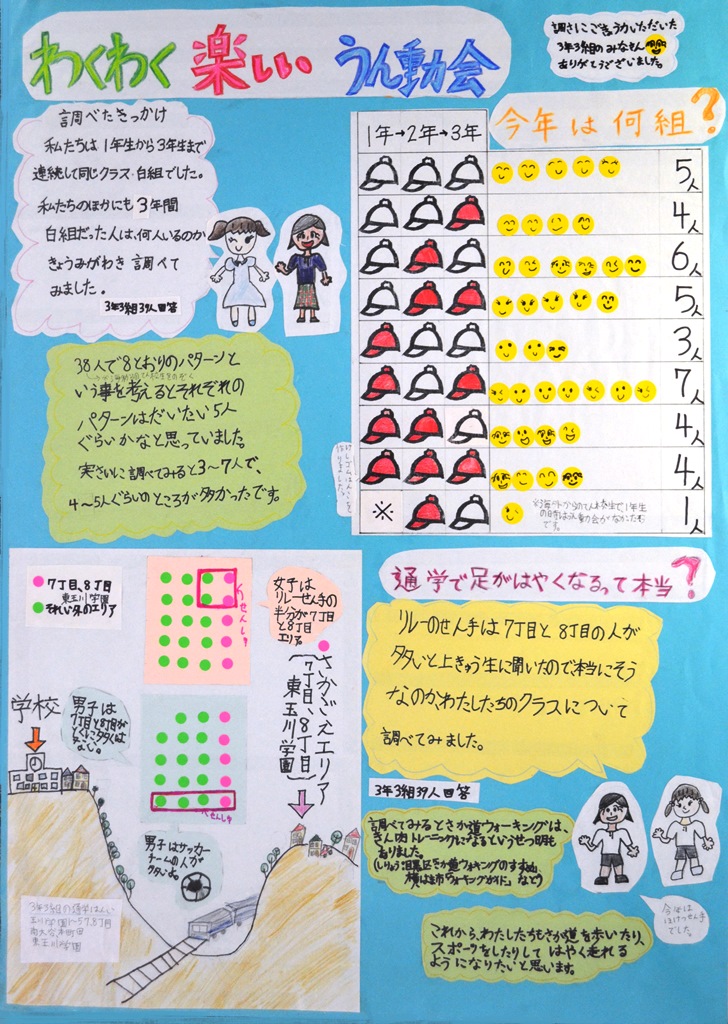 わくわく 楽しい うん動会
調さにご協力いただいた
3年3組のみなさん
ありがとうございました。
調べたきっかけ
私たちは1年生から3年生まで
連続して同じクラス・白組でした。
私たちのほかにも3年間
白組だった人は、何人いるのか
きょうみがわき 調べて
みました。
3年3組39人回答
38人で8とおりのパターンと
いう事を考えるとそれぞれの
パターンはだいたい5人
ぐらいかなと思っていました。
実さいに調べてみると3〜7人で、
4〜5人ぐらいのところが多かったです。
今年は何組?
1年→2年→3年
5人
4人
6人
5人
3人
7人
4人
4人
※
1人
7丁目、8丁目
東玉川学園
それい外のエリア
せんしゅ
女子は
リレーせん手の
半分が7丁目
と8丁目
エリア。
さかごえエリア
(7丁目、8丁目)
東玉川学園
学校
男子は
7丁目と8丁目が
とくに多くは
ない。
せんしゅ
男子はサッカー
チームの人が
多いよ。
3年3組の通学はんい
玉川学園1〜5.7.8丁目
南大谷
東玉川学園
通学で足がはやくなるって本当?
リレーのせん手は7丁目と8丁目の人が
多いと上きゅう生に聞いたので本当にそう
なのか、わたしたちのクラスについて
調べてみました。
3年3組39人回答
調べてみるとさか道ウォーキングは、
きん肉トレーニングになるというせつ明も
ありました。
(しりょう:目黒区さか道ウォーキングのすすめ
横はま市ウォーキングガイド など)
今年は
ほけつせん手
でした。
これから、わたしたちもさか道を歩いたり、
スポーツをしたりして はやく走れる
ようになりたいと思います。